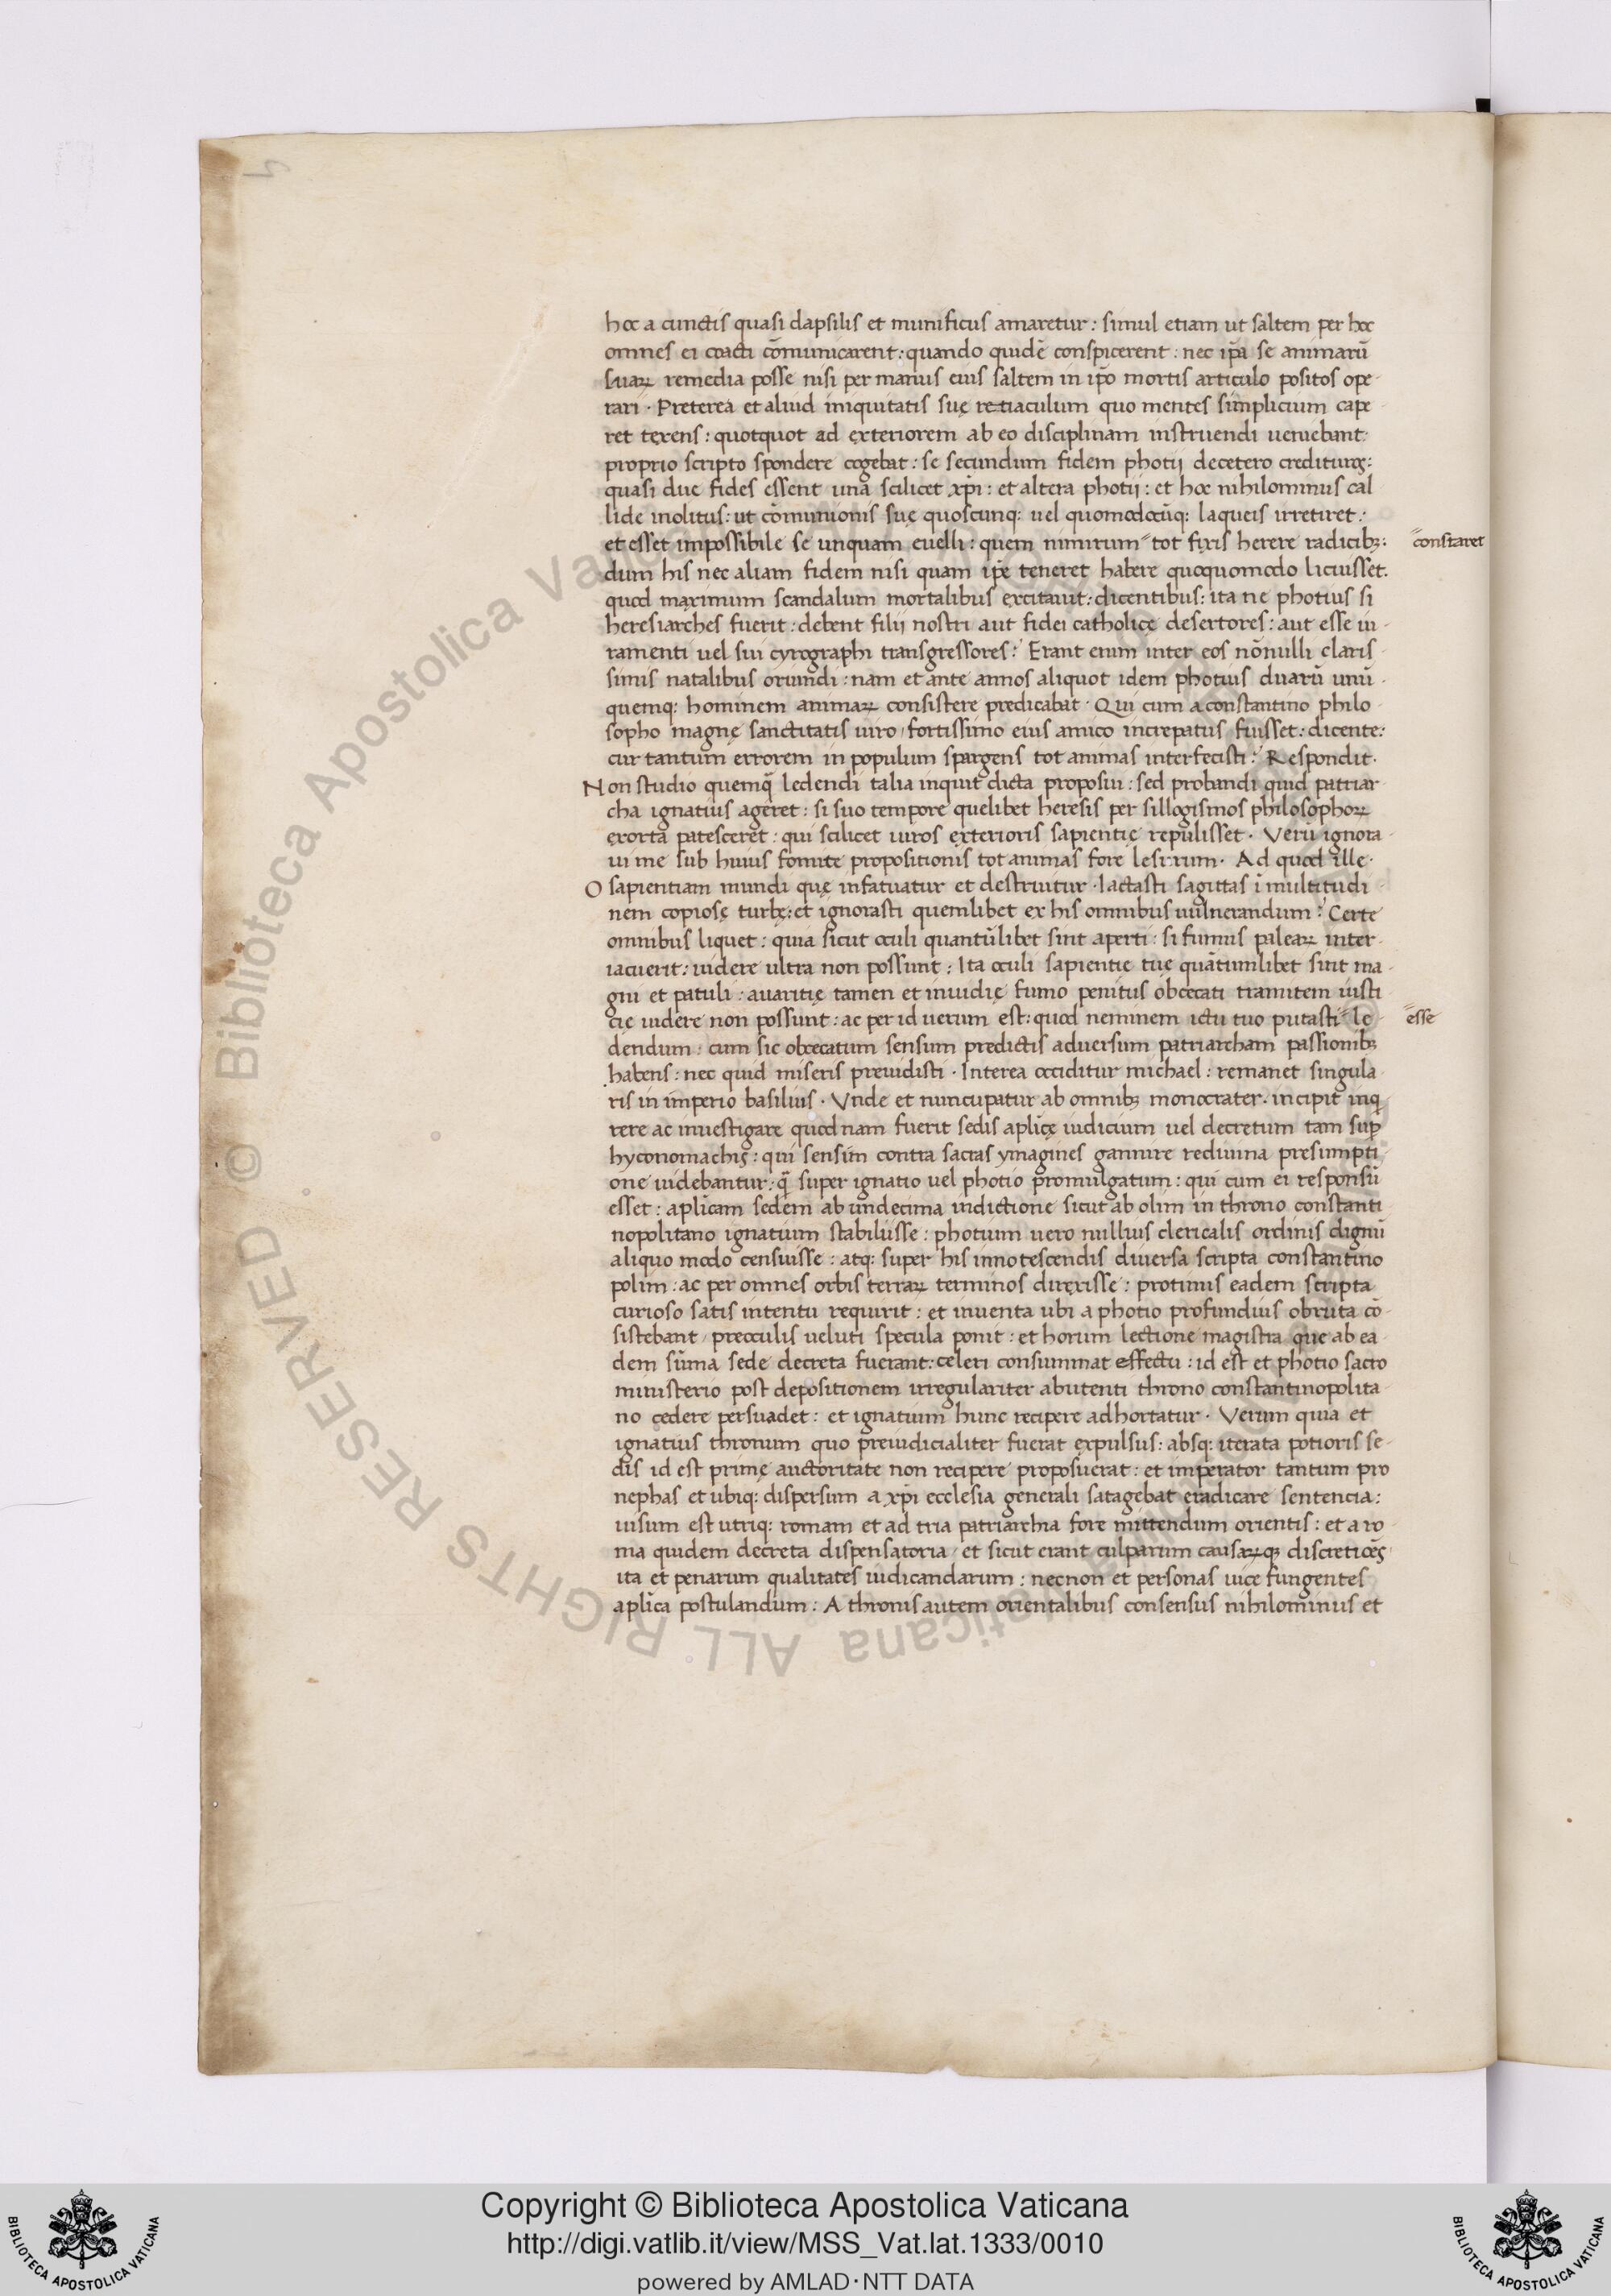 hoc a cunctis quasi dapsilis et munificus amaretur : simul etiam ut saltem per hoc
omnes ei coacti cõmunicarent : quando quidẽ conspicerent : nec ip̃a se animarũ
suaꝝ remedia posse nisi per manus eius saltem in ip̃o mortis articulo positos ope-
rari · Preterea et aliud iniquitatis suę retiaculum quo mentes simplicium cape-
ret texens : quotquot ad exteriorem ab eo disciplinam instruendi ueniebant
proprio scripto spondere cogebat : se secundum fidem photij decetero credituros :
quasi due fides essent una scilicet xp̃i : et altera photij : et hoc nihilominus cal
lide molitus : ut cõmunionis suę quoscunq; uel quomodocũq; laqueis irretiret :
et esset impossibile se unquam euelli : quem nimirum〃 tot fixis herere radicibꝫ :
〃constaret
dum his nec aliam fidem nisi quam ip̃e teneret habere quoquomodo licuisset.
quod maximum scandalum mortalibus excitauit : dicentibus : ita ne photius si
heresiarches fuerit : debent filij nostri aut fidei catholicę desertores : aut esse iu-
ramenti uel sui cyrographi transgressores ? Erant enim inter eos nõnulli claris-
simis natalibus oriundi : nam et ante annos aliquot idem photius duarũ unũ-
quemq; hominem animaꝝ consistere predicabat · Qui cum a constantino philo-
sopho magnę sanctitatis uiro , fortissimo eius amico increpatus fuisset : dicente :
cur tantum errorem in populum spargens tot animas interfecisti ? Respondit ·
Non studio quemq̃ ledendi talia inquit dicta proposui : sed probandi quid patriar-
cha ignatius ageret : si suo tempore quelibet heresis per sillogismos philosophoꝝ
exorta patesceret : qui scilicet uiros exterioris sapientię repulisset · Verũ ignora-
ui me sub huius fomite propositionis tot animas fore lesurum · Ad quod ille ·
O sapientiam mundi quę infatuatur et destruitur · Iactasti sagittas ĩ multitudi-
nem copiosę turbę : et ignorasti quemlibet ex his omnibus uulnerandum ? Certe
omnibus liquet : quia sicut oculi quantũlibet sint aperti : si fumus paleaꝝ inter-
iacuerit : uidere ultra non possunt : Ita oculi sapientię tuę quãtumlibet sint ma-
gni et patuli : auaritię tamen et inuidię fumo penitus obcecati tramitem iusti-
cię uidere non possunt : ac per id uerum est : quod neminem ictu tuo putasti〃 le-
〃esse
dendum : cum sic obcecatum sensum predictis aduersum patriarcham passionibꝫ
habens : nec quid miseris preuidisti · Interea occiditur michael : remanet singula-
ris in imperio basilius · Vnde et nuncupatur ab omnibꝫ monocrater · incipit inq̃
rere ac inuestigare quod nam fuerit sedis apl̃icę iudicium uel decretum tam sup̃
hyconomachis : qui sensim contra sacras ymagines gannire rediuiua presumpti-
one uidebantur : q̃ super ignatio uel photio promulgatum : qui cum ei responsũ
esset : apl̃icam sedem ab undecima indictione sicut ab olim in throno constanti
nopolitano ignatium stabilisse : photium uero nullius clericalis ordinis dignũ
aliquo modo censuisse : atq; super his innotescendis diuersa scripta constantino
polim : ac per omnes orbis terraꝝ terminos direxisse : protinus eadem scripta
curioso satis intentu requirit : et inuenta ubi a photio profundius obruta cõ-
sistebant , preoculis ueluti specula ponit : et horum lectione magistra que ab ea-
dem sũma sede decreta fuerant : celeri consummat effectu : id est et photio sacro
ministerio post depositionem irregulariter abutenti throno constantinopolita-
no cedere persuadet : et ignatium hunc recipere adhortatur · Verum quia et
ignatius thronum quo preiudicialiter fuerat expulsus : absq; iterata potioris se-
dis id est primę auctoritate non recipere proposuerat : et imperator tantum pro
nephas et ubiq; dispersum a xp̃i ecclesia generali satagebat eradicare sentencia :
uisum est utriq; romam et ad tria patriarchia fore mittendum orientis : et a ro-
ma quidem decreta dispensatoria , et sicut erant culparum causaꝝqꝫ discretiões
ita et penarum qualitates iudicandarum : necnon et personas uice fungentes
apl̃ica postulandum : A thronis autem orientalibus consensus nihilominus et
Copyright © Biblioteca Apostolica Vaticana
http://digi.vatlib.it/view/MSS_Vat.lat.1333/0010
powered by AMLAD·NTT DATA
BIBLIOTECA APOSTOLICA VATICANA
BIBLIOTECA APOSTOLICA VATICANA
© Biblioteca Apostolica Vaticana ALL RIGHTS RESERVED